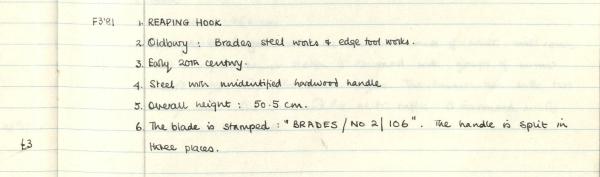 F3'81 1. REAPING HOOK
2. Oldbury : Brades steel works & edge tool works.
3. Early 20th century.
4. Steel with unidentified hardwood handle
5. Overall height : 50.5 cm.
6. The blade is stamped : "BRADES / NO 2 / 106". The handle is split in
£3 three places.